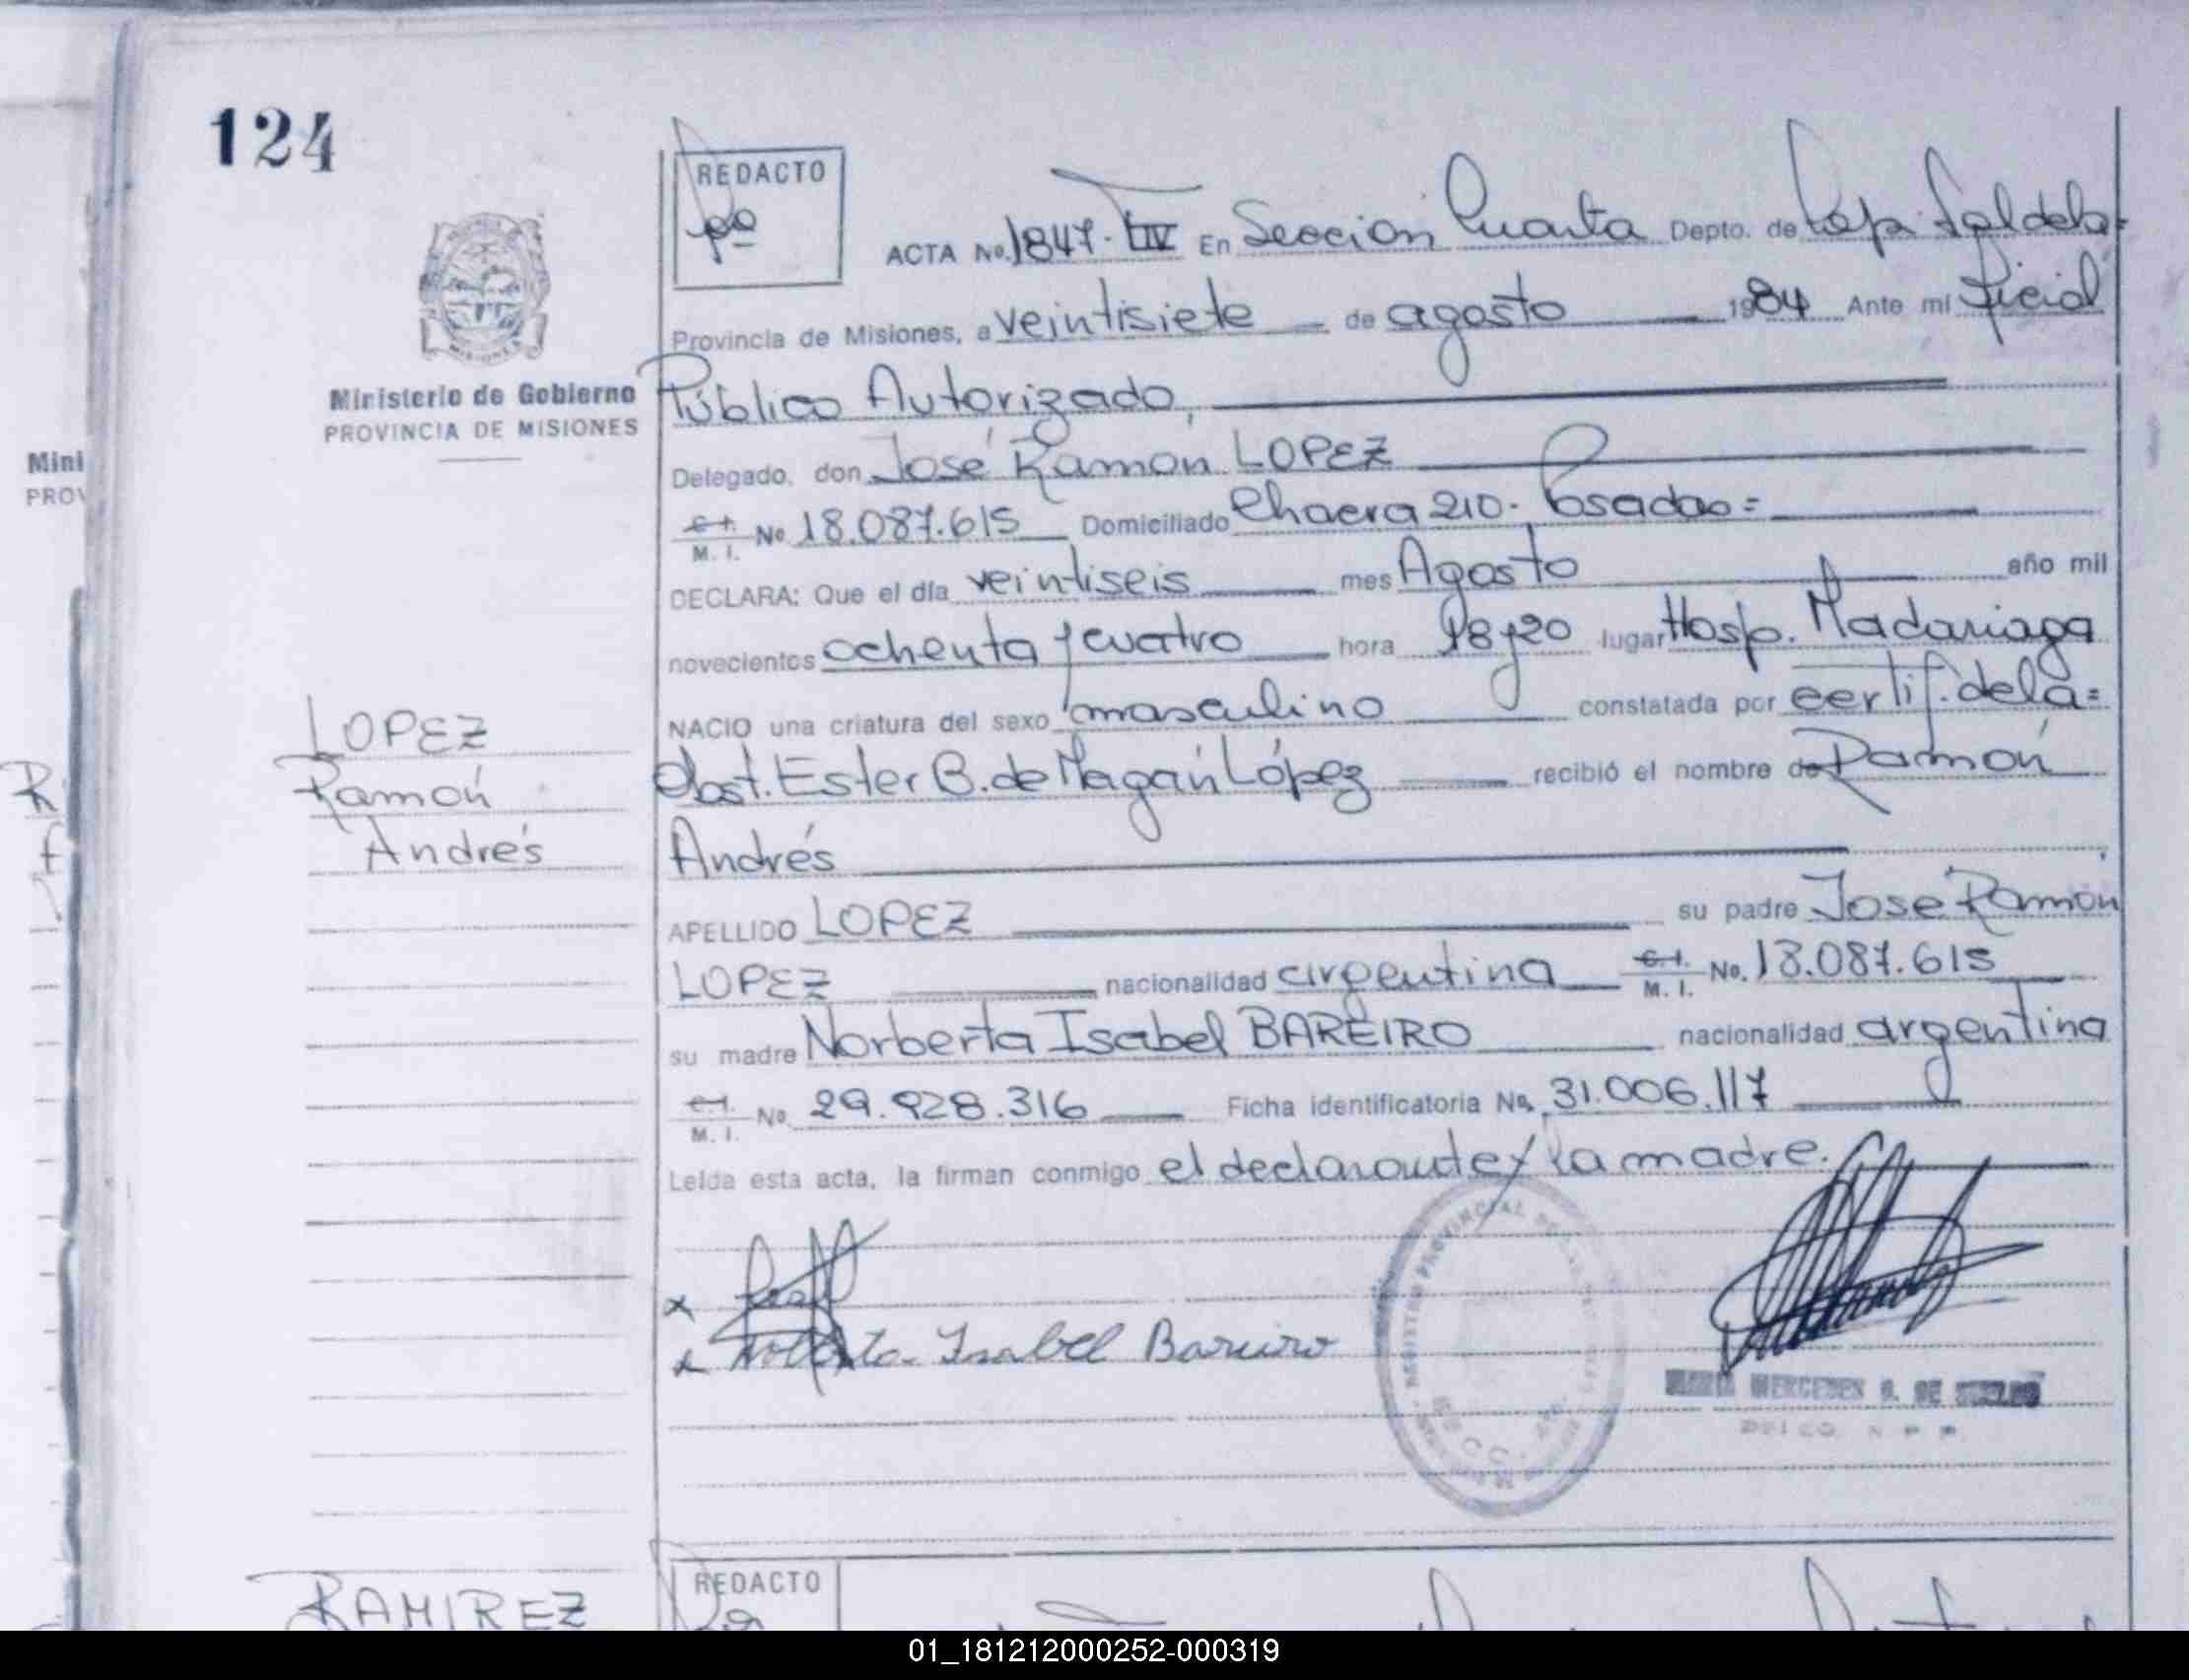 124
REDACTO
ACTA No. 1847. TIV En Sección Cuarta Depto. de Capital de la
Provincia de Misiones, a veintisiete de agosto 1984 Ante mi ficial
Ministerio de Gobierno
PROVINCIA DE MISIONES
Público Autorizado,
Delegado, don José Ramón LOPEZ
C.I. M. I. No 18.087.615 Domiciliado Chacra 210. Posadas=
DECLARA: Que el día veintiseis mes Agosto año mil
novecientos ochenta y cuatro hora 18y20 lugar Hosp. Madariaga
NACIO una criatura del sexo masculino constatada por certif. de la=
Obst. Ester B. de Magán López recibió el nombre de Ramón
Andrés
LOPEZ
Ramón
Andrés
APELLIDO LOPEZ su padre José Ramón
LOPEZ nacionalidad argentina C.I. M. I. No. 18.087.615
su madre Norberta Isabel BAREIRO nacionalidad argentina
C.I. M. I. No. 29.928.316 Ficha identificatoria No. 31.006.117
Leída esta acta, la firman conmigo el declarante y la madre.
x
x Norberta Isabel Bareiro
REGISTRO PROVINCIAL DE LAS
MERCEDES G. DE
Mini
PROV
R
f
RAMIREZ
REDACTO
01_181212000252-000319